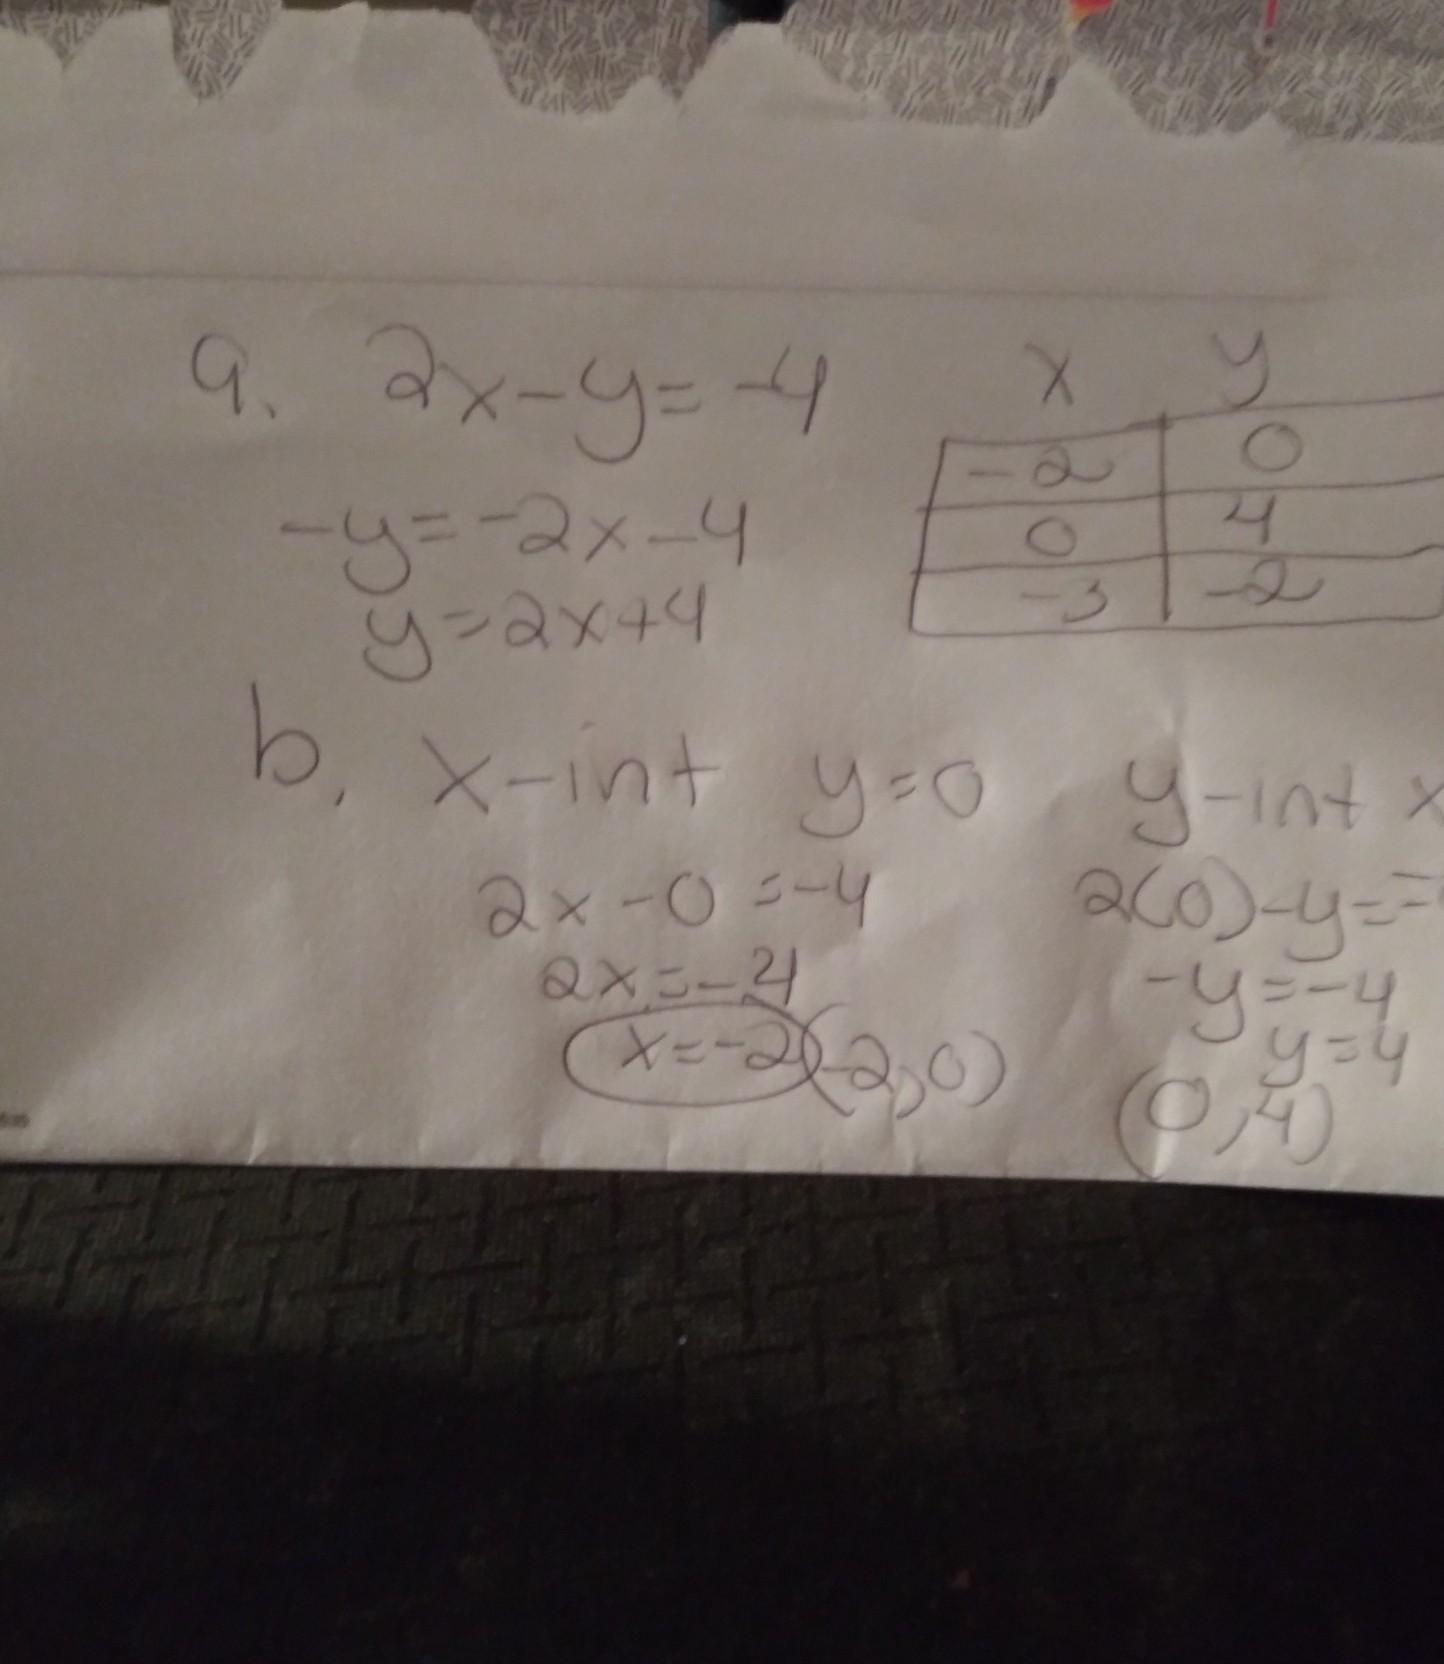 a. 2x-y=-4
-y=-2x-4
y=2x+4
x y
-2 0
0 4
-3 -2
b. x-int y=0
2x-0=-4
2x=-4
x=-2 (-2,0)
y-int x
2(0)-y=-
-y=-4
y=4
(0,4)